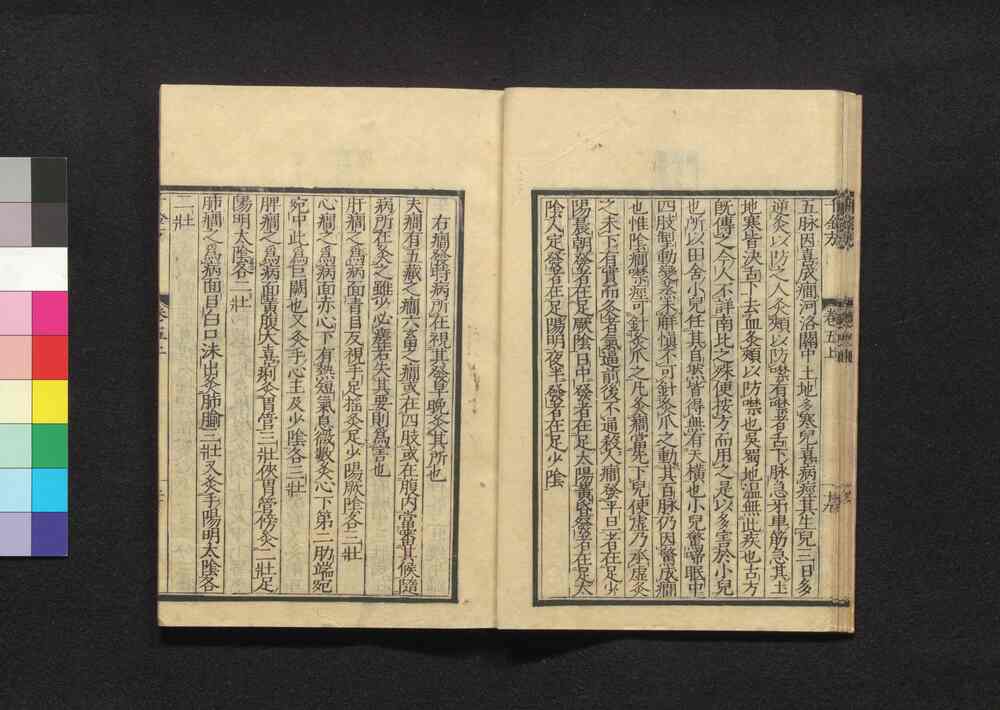 五脉因喜成癇河洛關中土地多寒兒喜病痙其生兒三日多
逆灸以防之又灸頰以防噤有噤者舌下脉急牙車筋急其土
地寒皆決舌下去血灸頰以防噤也吳蜀地温無此疾也古方
既傳之今人不詳南北之殊便按方而用之是以多害於小兒
也所以田舍小兒任其自然皆得無有夭橫也小兒驚啼眠中
四肢掣動變蒸未解慎不可針灸爪之動其百脉仍因驚成癇
也惟陰癇噤痙可針灸爪之凡灸癇當先下兒使虚乃承虚灸
之未下有實而灸者氣逼前後不通殺人癇發平旦者在足少
陽晨朝發者在足厥陰日中發者在足太陽黃昏發者在足太
陰人定發者在足陽明夜半發者在足少陰
卷五上
右癇發時病所在視其發早晚灸其所也
夫癇有五藏之癇六畜之癇或在四肢或在腹内當審其候隨
病所在灸之雖少必差若失其要則爲害也
肝癇之爲病面青目反視手足揺灸足少陽厥陰各三壯
心癇之爲病面赤心下有熱短氣息微數灸心下第二肋端宛
宛中此爲巨闕也又灸手心主及少陰各三壯
脾癇之爲病面黄腹大喜痢灸胃管三壯俠胃管傍灸二壯足
陽明太陰各二壯
肺癇之爲病面目白口沫出灸肺腧三壯又灸手陽明太陰各
二壯